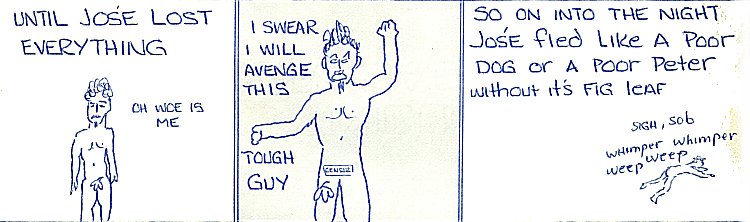 UNTIL JOSÉ LOST
EVERYTHING
OH WOE IS
ME
I SWEAR
I WILL
AVENGE
THIS
TOUGH
GUY
SO ON INTO THE NIGHT
JOSÉ flED LIKE A POOR
DOG OR A POOR PETER
WITHOUT IT'S FIG LEAF
SIGH, SOB
WHIMPER WHIMPER
WEEP WEEP